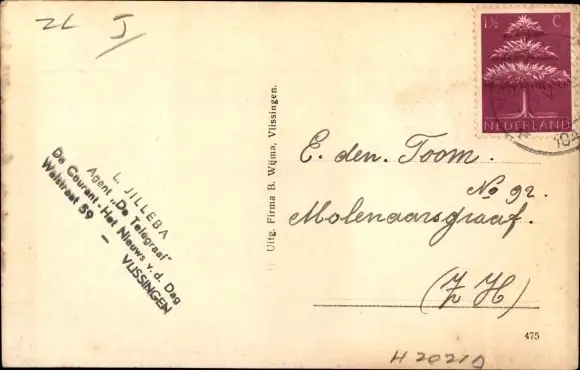 ZL I
1½ C
NEDERLAND
194
L. JILLEBA
Agent „De Telegraaf"
De Courant - Het Nieuws v. d. Dag
Walstraat 59 — VLISSINGEN
Uitg. Firma B. Wijma, Vlissingen.
E. den. Toom.
No 92.
Molenaarsgraaf.
(Z H)
475
H 2021D